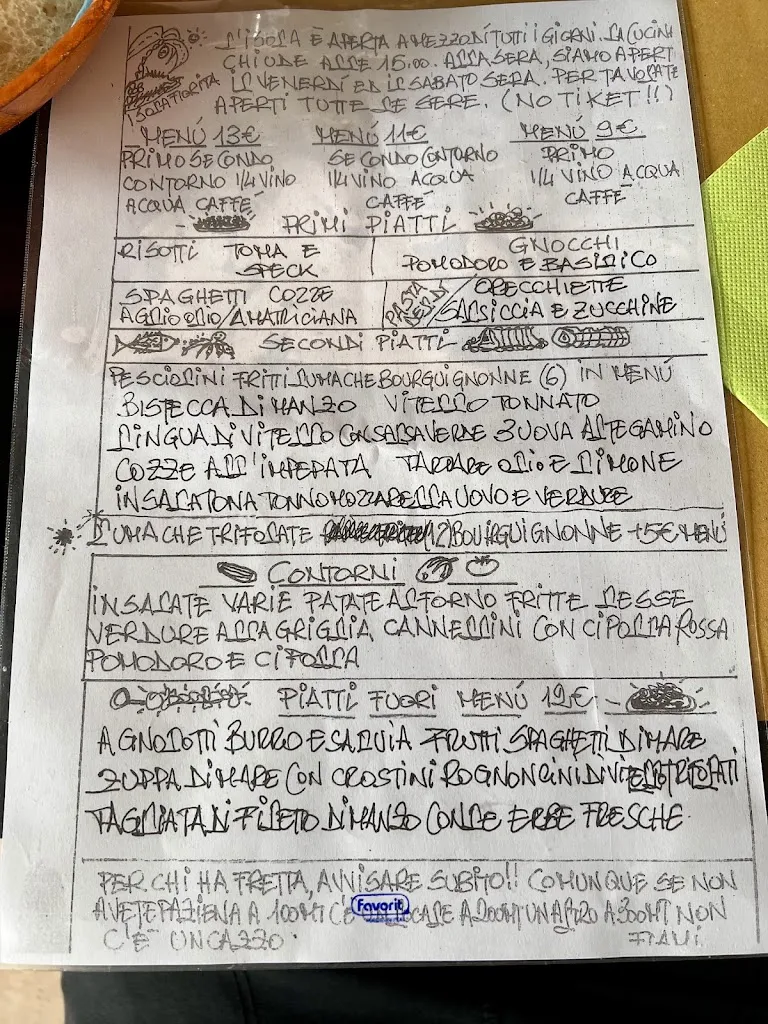 L'ISOLA È APERTA A MEZZODÍ TUTTI I GIORNI. LA CUCINA
CHIUDE ALLE 15.00. ALLA SERA, SIAMO APERTI
IL VENERDÍ ED IL SABATO SERA. PER TAVOLATE
APERTI TUTTE LE SERE. (NO TIKET!!)
ISOLA FIORITA
MENÚ 13€ MENÚ 11€ MENÚ 9€
PRIMO SECONDO SECONDO CONTORNO PRIMO
CONTORNO 1/4 VINO 1/4 VINO ACQUA 1/4 VINO ACQUA
ACQUA CAFFÈ CAFFÈ CAFFÈ
PRIMI PIATTI
RISOTTI TOMA E GNOCCHI
SPECK POMODORO E BASILICO
SPAGHETTI COZZE PASTA ORECCHIETTE
AGLIO OLIO/AMATRICIANA SALSICCIA E ZUCCHINE
SECONDI PIATTI
PESCIOLINI FRITTI LUMACHE BOURGUIGNONNE (6) IN MENÚ
BISTECCA DI MANZO VITELLO TONNATO
LINGUA DI VITELLO CON SALSA VERDE 3 UOVA AL TEGAMINO
COZZE ALL'IMPEPATA TARTARE OLIO E LIMONE
INSALATONA TONNO MOZZARELLA UOVO E VERDURE
LUMACHE TRIFOLATE (12) BOURGUIGNONNE +5€ MENÚ
CONTORNI
INSALATE VARIE PATATE AL FORNO FRITTE LESSE
VERDURE ALLA GRIGLIA CANNELLINI CON CIPOLLA ROSSA
POMODORO E CIPOLLA
PIATTI FUORI MENÚ 12€
AGNOLOTTI BURRO E SALVIA FRUTTI SPAGHETTI DI MARE
ZUPPA DI MARE CON CROSTINI ROGNONCINI DI VITELLO TRIFOLATI
TAGLIATA DI FILETO DI MANZO CON LE ERBE FRESCHE
PER CHI HA FRETTA, AVVISARE SUBITO!! COMUNQUE SE NON
AVETE PAZIENA A 100MT C'È LOCALE A 200MT UN ALTRO A 300MT NON
C'È UN CAZZO.
Favorit